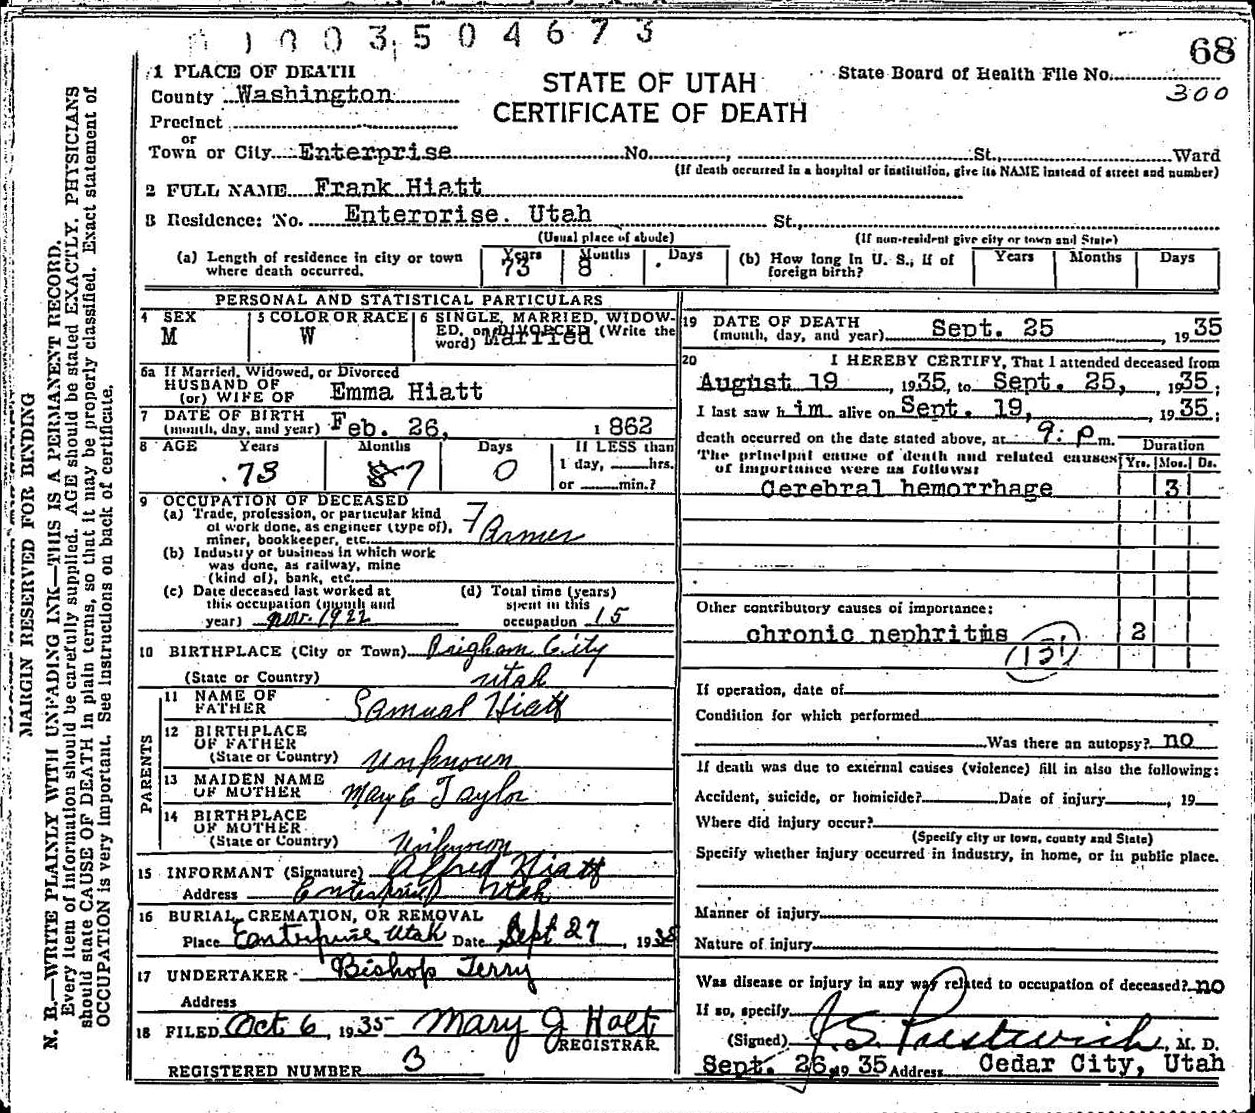 0 1 0 0 3 5 0 4 6 7 3
68
1 PLACE OF DEATH
STATE OF UTAH
CERTIFICATE OF DEATH
State Board of Health File No.
300
County Washington
Precinct
or
Town or City Enterprise No. , St., Ward
(If death occurred in a hospital or institution, give its NAME instead of street and number)
2 FULL NAME Frank Hiatt
3 Residence: No. Enterprise. Utah St.,
(Usual place of abode) (If non-resident give city or town and State)
(a) Length of residence in city or town where death occurred. Years 73 Months 8 Days
(b) How long in U. S., if of foreign birth? Years Months Days
PERSONAL AND STATISTICAL PARTICULARS
4 SEX
M
5 COLOR OR RACE
W
6 SINGLE, MARRIED, WIDOW-
ED, or DIVORCED (Write the
word) Married
6a If Married, Widowed, or Divorced
HUSBAND OF
(or) WIFE OF Emma Hiatt
7 DATE OF BIRTH
(month, day, and year) Feb. 26, 1862
8 AGE Years Months Days If LESS than
73 7 0 1 day, hrs.
or min.?
9 OCCUPATION OF DECEASED
(a) Trade, profession, or particular kind
of work done, as engineer (type of),
miner, bookkeeper, etc. Farmer
(b) Industry or business in which work
was done, as railway, mine
(kind of), bank, etc.
(c) Date deceased last worked at
this occupation (month and
year) nov. 1922
(d) Total time (years)
spent in this
occupation 15
10 BIRTHPLACE (City or Town) Brigham City
(State or Country) Utah
PARENTS
11 NAME OF
FATHER Samual Hiatt
12 BIRTHPLACE
OF FATHER
(State or Country) Unknown
13 MAIDEN NAME
OF MOTHER May E Taylor
14 BIRTHPLACE
OF MOTHER
(State or Country) Unknown
15 INFORMANT (Signature) Alfred Hiatt
Address Enterprise Utah
16 BURIAL, CREMATION, OR REMOVAL
Place Enterprise Utah Date Sept 27, 1935
17 UNDERTAKER Bishop Terry
Address
18 FILED Oct 6, 1935 Mary J Holt
REGISTRAR
REGISTERED NUMBER 3
19 DATE OF DEATH
(month, day, and year) Sept. 25 1935
20 I HEREBY CERTIFY, That I attended deceased from
August 19, 1935, to Sept. 25, 1935;
I last saw him alive on Sept. 19, 1935;
death occurred on the date stated above, at 9: p m.
Duration
The principal cause of death and related causes
of importance were as follows: Yrs. Mos. Ds.
Cerebral hemorrhage 3
Other contributory causes of importance:
chronic nephritis 2
(131)
If operation, date of
Condition for which performed
Was there an autopsy? no
If death was due to external causes (violence) fill in also the following:
Accident, suicide, or homicide? Date of injury , 19
Where did injury occur?
(Specify city or town, county and State)
Specify whether injury occurred in industry, in home, or in public place.
Manner of injury
Nature of injury
Was disease or injury in any way related to occupation of deceased? no
If so, specify
(Signed) J. S. Prestwich, M. D.
Sept. 26, 19 35 Address Cedar City, Utah
MARGIN RESERVED FOR BINDING
N. B.—WRITE PLAINLY WITH UNFADING INK—THIS IS A PERMANENT RECORD.
Every item of information should be carefully supplied. AGE should be stated EXACTLY. PHYSICIANS
should state CAUSE OF DEATH in plain terms, so that it may be properly classified. Exact statement of
OCCUPATION is very important. See instructions on back of certificate.